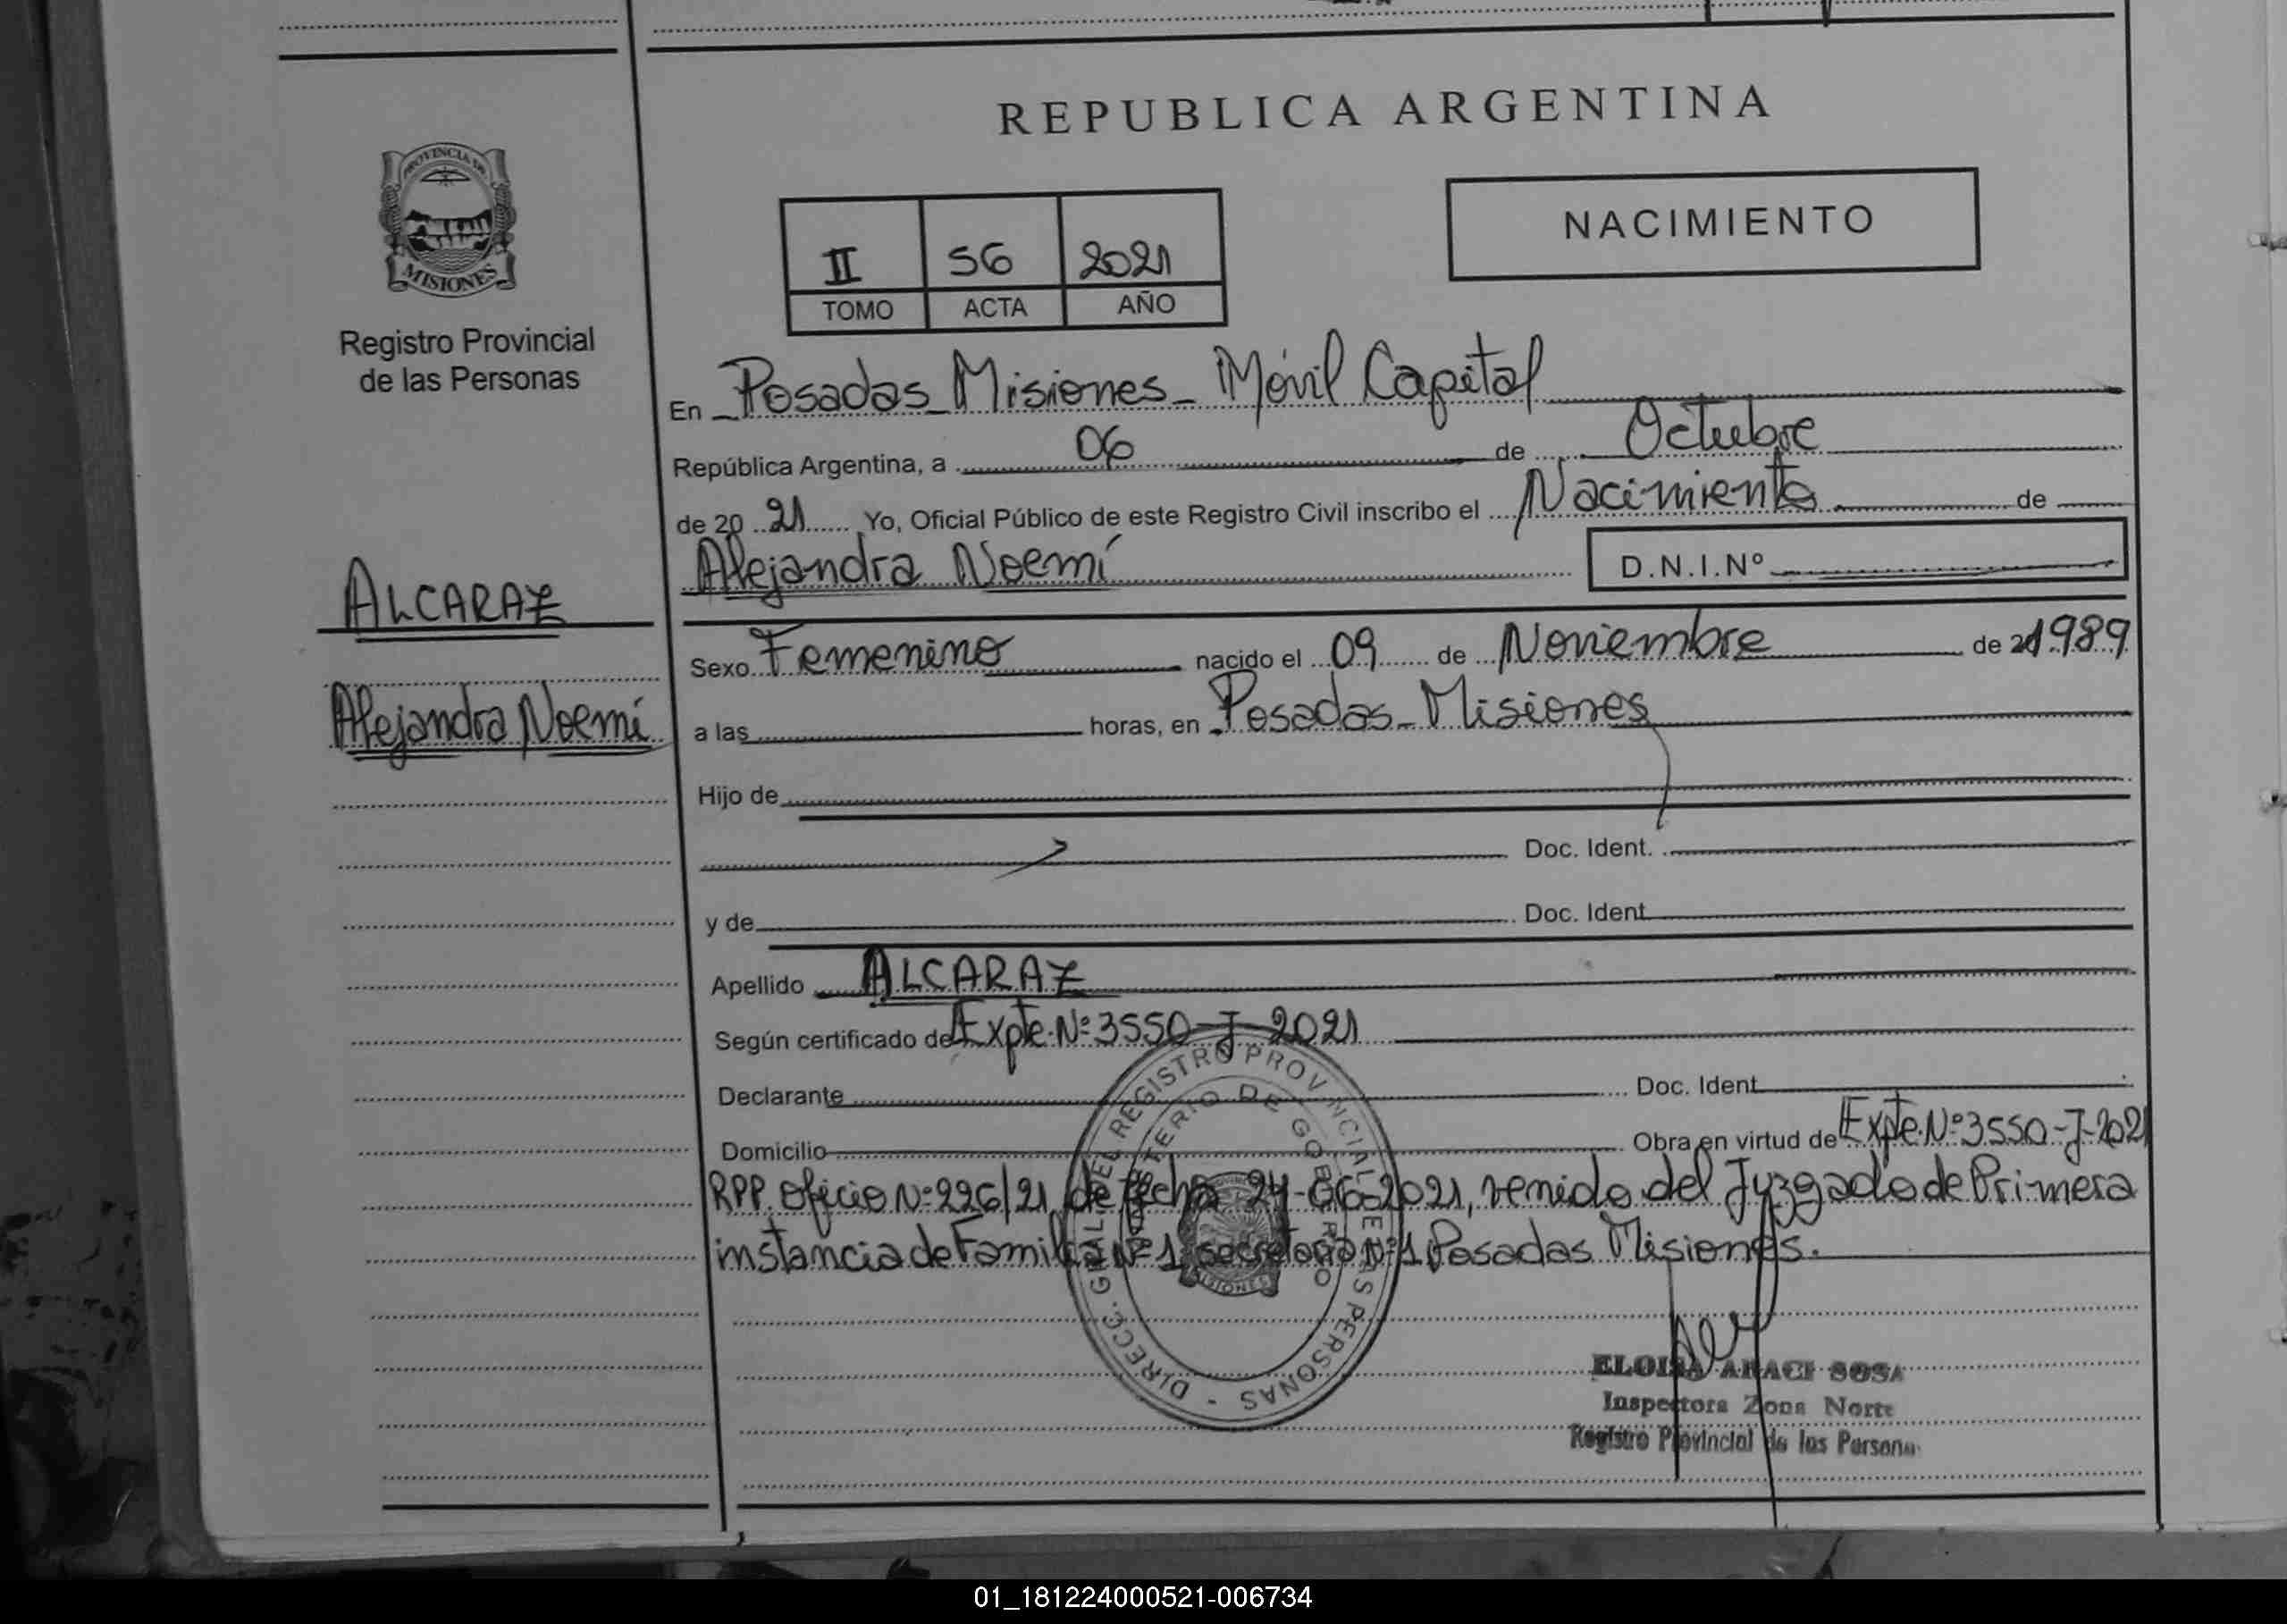 REPUBLICA ARGENTINA
PROVINCIA DE
MISIONES
Registro Provincial
de las Personas
NACIMIENTO
II 56 2021
TOMO ACTA AÑO
En Posadas Misiones - Móvil Capital
República Argentina, a 06 de Octubre
de 20 21 Yo, Oficial Público de este Registro Civil inscribo el Nacimiento de
Alejandra Noemí D.N.I.Nº
ALCARAZ
Alejandra Noemí
Sexo Femenino nacido el 09 de Noviembre de 1989
a las horas, en Posadas - Misiones
Hijo de
Doc. Ident.
y de Doc. Ident
Apellido ALCARAZ
Según certificado de Expte. Nº 3550-J-2021
Declarante Doc. Ident
Domicilio Obra en virtud de Expte. Nº 3550-J-2021
RPP. Oficio Nº 226/21 de fecha 24-06-2021, venido del Juzgado de Primera
instancia de Familia Nº 1 secretaria Nº 1 Posadas Misiones.
DIRECC. GRAL. DEL REGISTRO PROVINCIAL DE LAS PERSONAS -
MINISTERIO DE GOBIERNO
MISIONES
ELOISA ARACI SOSA
Inspectora Zona Norte
Registro Provincial de las Persona
01_181224000521-006734